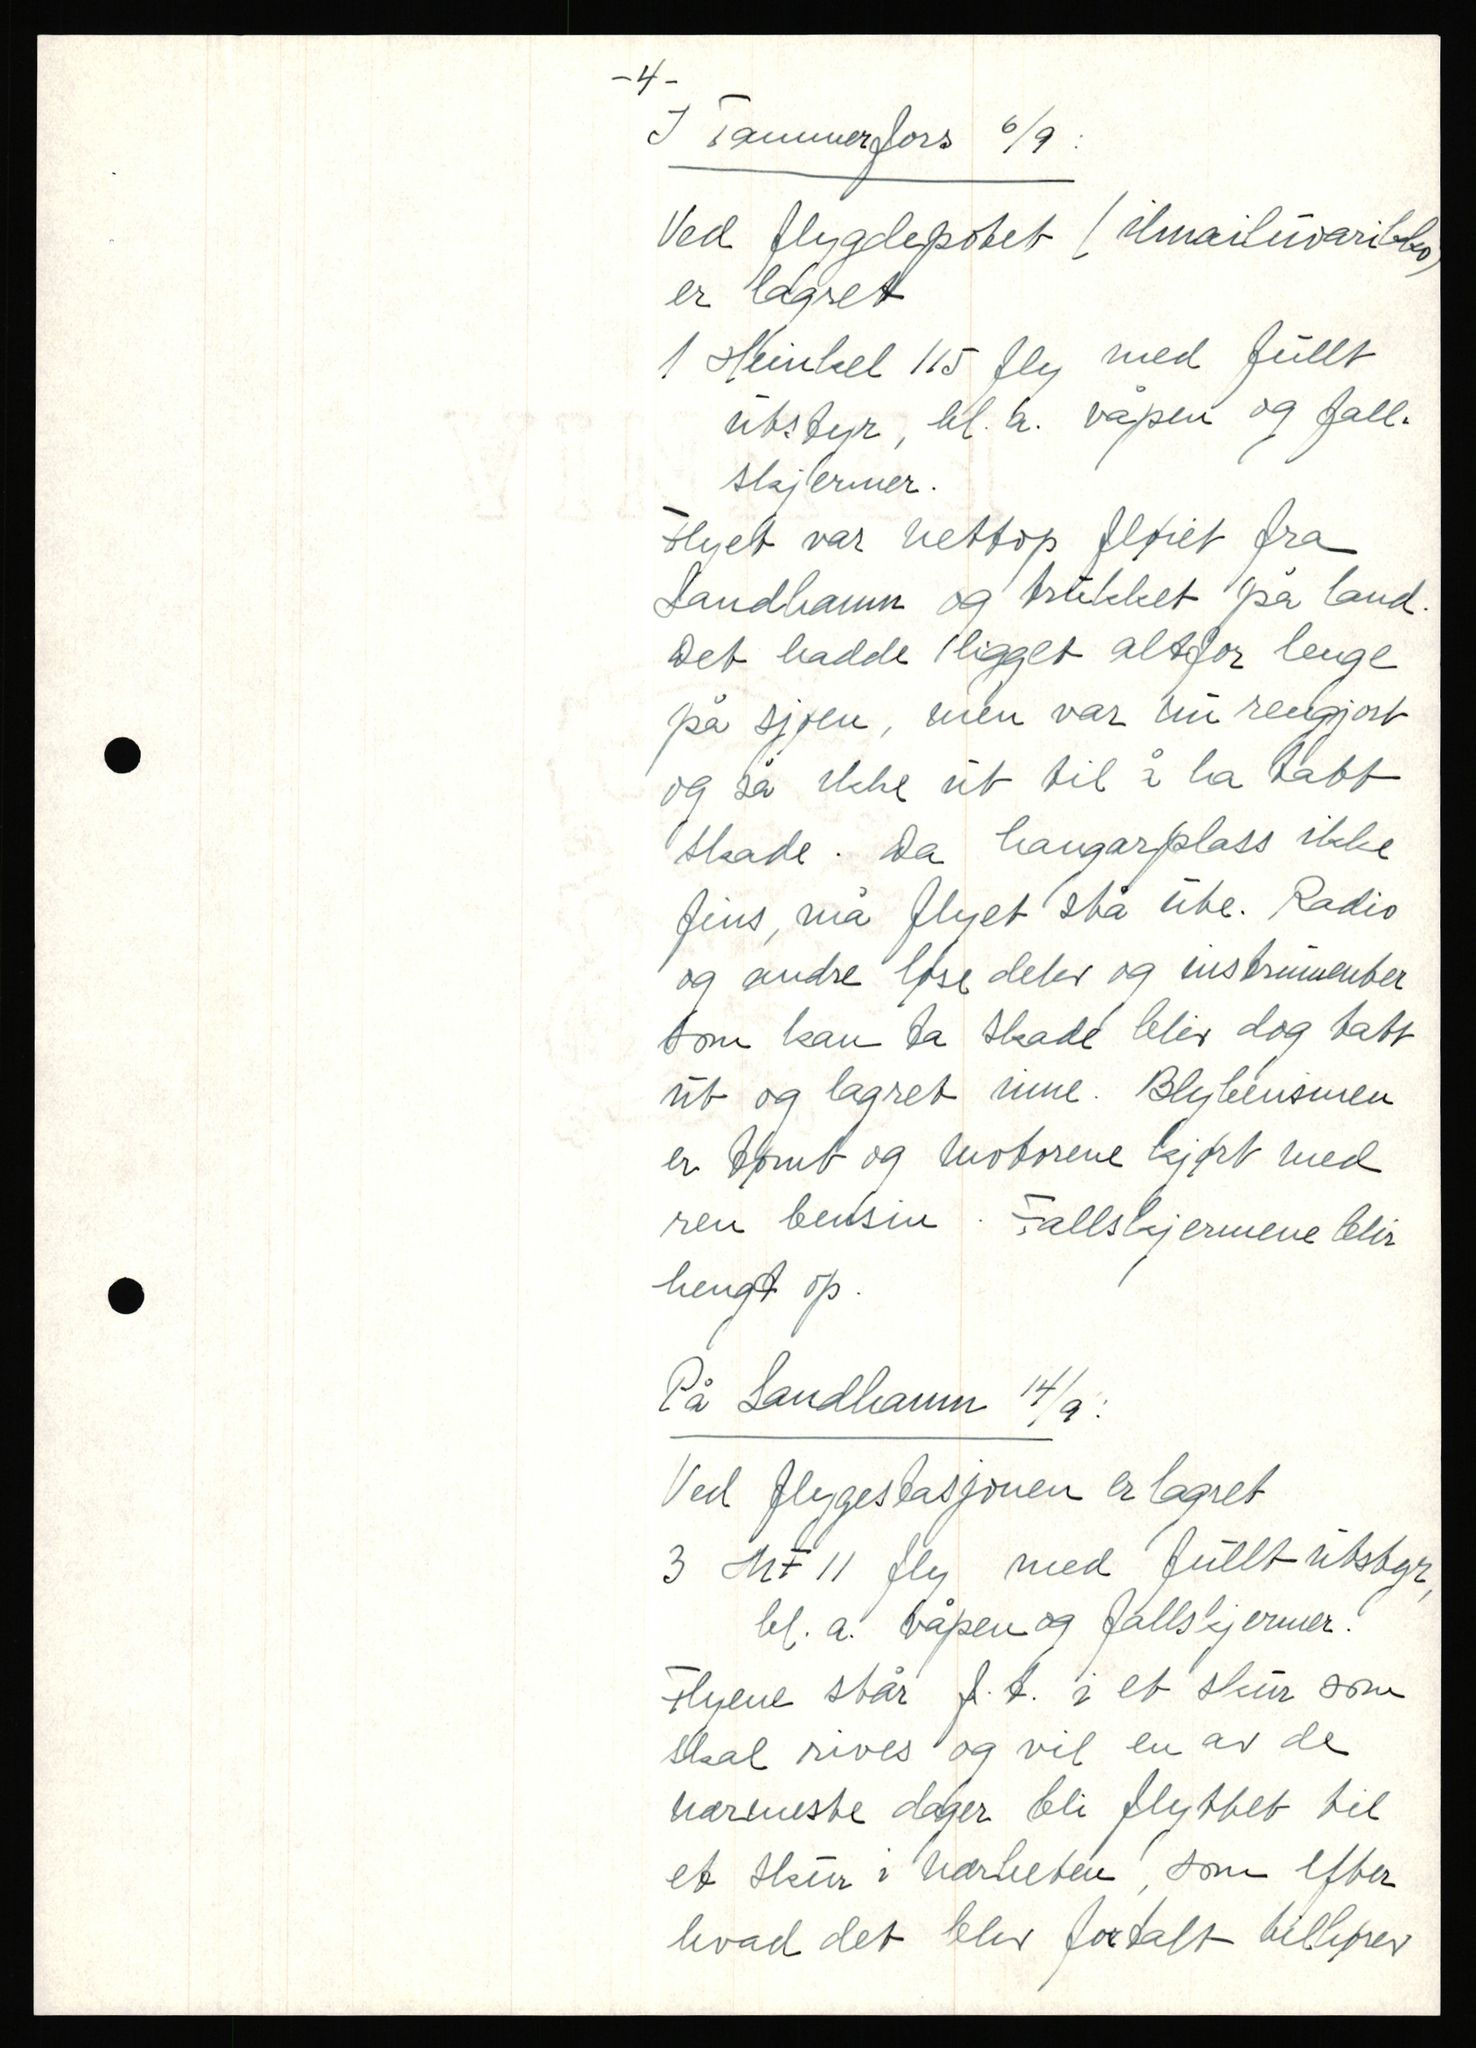 -4-
I Tammerfors 6/9:
Ved flygdepotet (ilmailuvarikko)
er lagret
1 Heinkel 115 fly med fullt
utstyr, bl. a. våpen og fall-
skjermer.
Flyet var nettop fløiet fra
Sandhamn og trukket på land.
Det hadde ligget altfor lenge
på sjøen, men var nu rengjort
og så ikke ut til å ha tatt
skade. Da hangarplass ikke
fins, må flyet stå ute. Radio
og andre løse deler og instrumenter
som kan ta skade blev dog tatt
ut og lagret inne. Blybensinen
er tømt og motorene kjørt med
ren bensin. Fallskjermene blir
hengt op.
På Sandhamn 14/9:
Ved flygestasjonen er lagret
3 MF 11 fly med fullt utstyr,
bl. a. våpen og fallskjermer.
Flyene står f. t. i et skur som
skal rives og vil en av de
nærmeste dager bli flyttet til
et skur i nærheten, som efter
hvad det blev fortalt tilhører